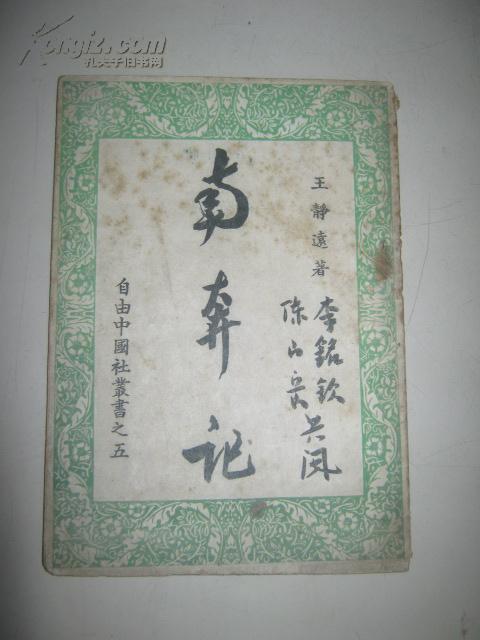 Kongfz.com
孔夫子旧书网
王靜遠著
南奔记
自由中國社叢書之五
李銘欽
陈山